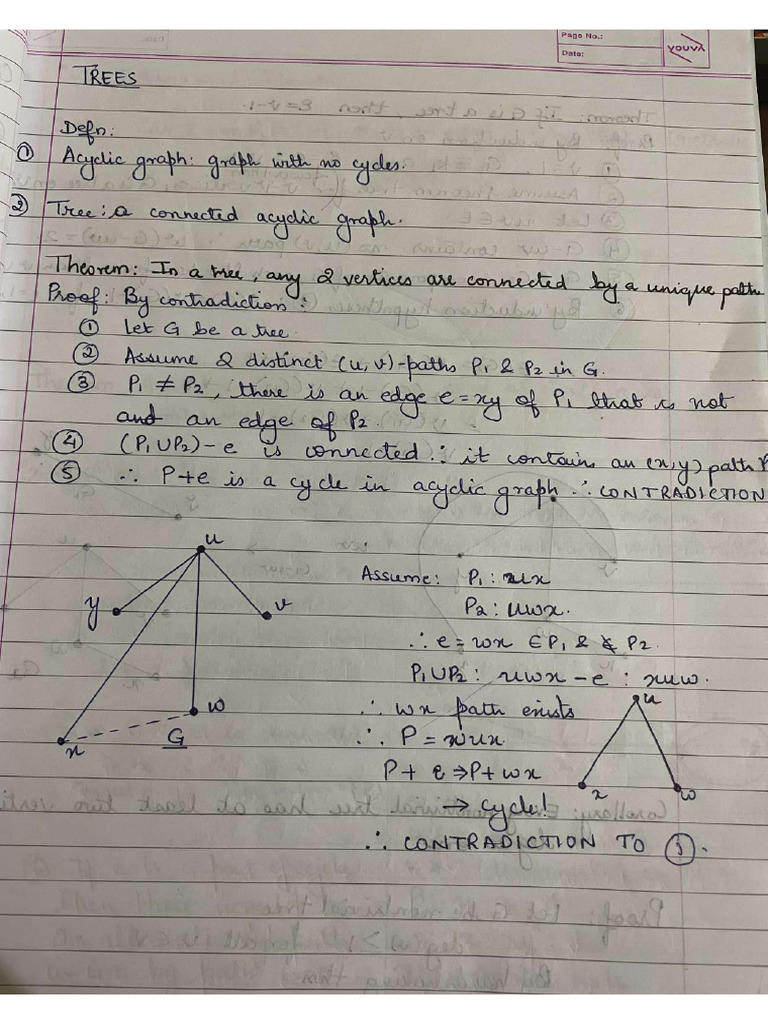 Page No.:
Date:
YOUVA
TREES
Defn:
① Acyclic graph: graph with no cycles.
② Tree: a connected acyclic graph.
Theorem: In a tree, any 2 vertices are connected by a unique path
Proof: By contradiction:
① Let G be a tree.
② Assume 2 distinct (u, v)-paths P1 & P2 in G.
③ P1 ≠ P2, there is an edge e = xy of P1 that is not
and an edge of P2.
④ (P1 ∪ P2) - e is connected ∴ it contains an (x, y) path P
⑤ ∴ P+e is a cycle in acyclic graph ∴ CONTRADICTION
u
y
v
w
x
G
Assume: P1: ux
P2: uwx.
∴ e = wx ∈ P1 & ∉ P2.
P1 ∪ P2: uwx - e : xuw.
∴ wx path exists
∴ P = wux
P + e ⇒ P + wx
→ cycle!
∴ CONTRADICTION TO ①.
u
x
w